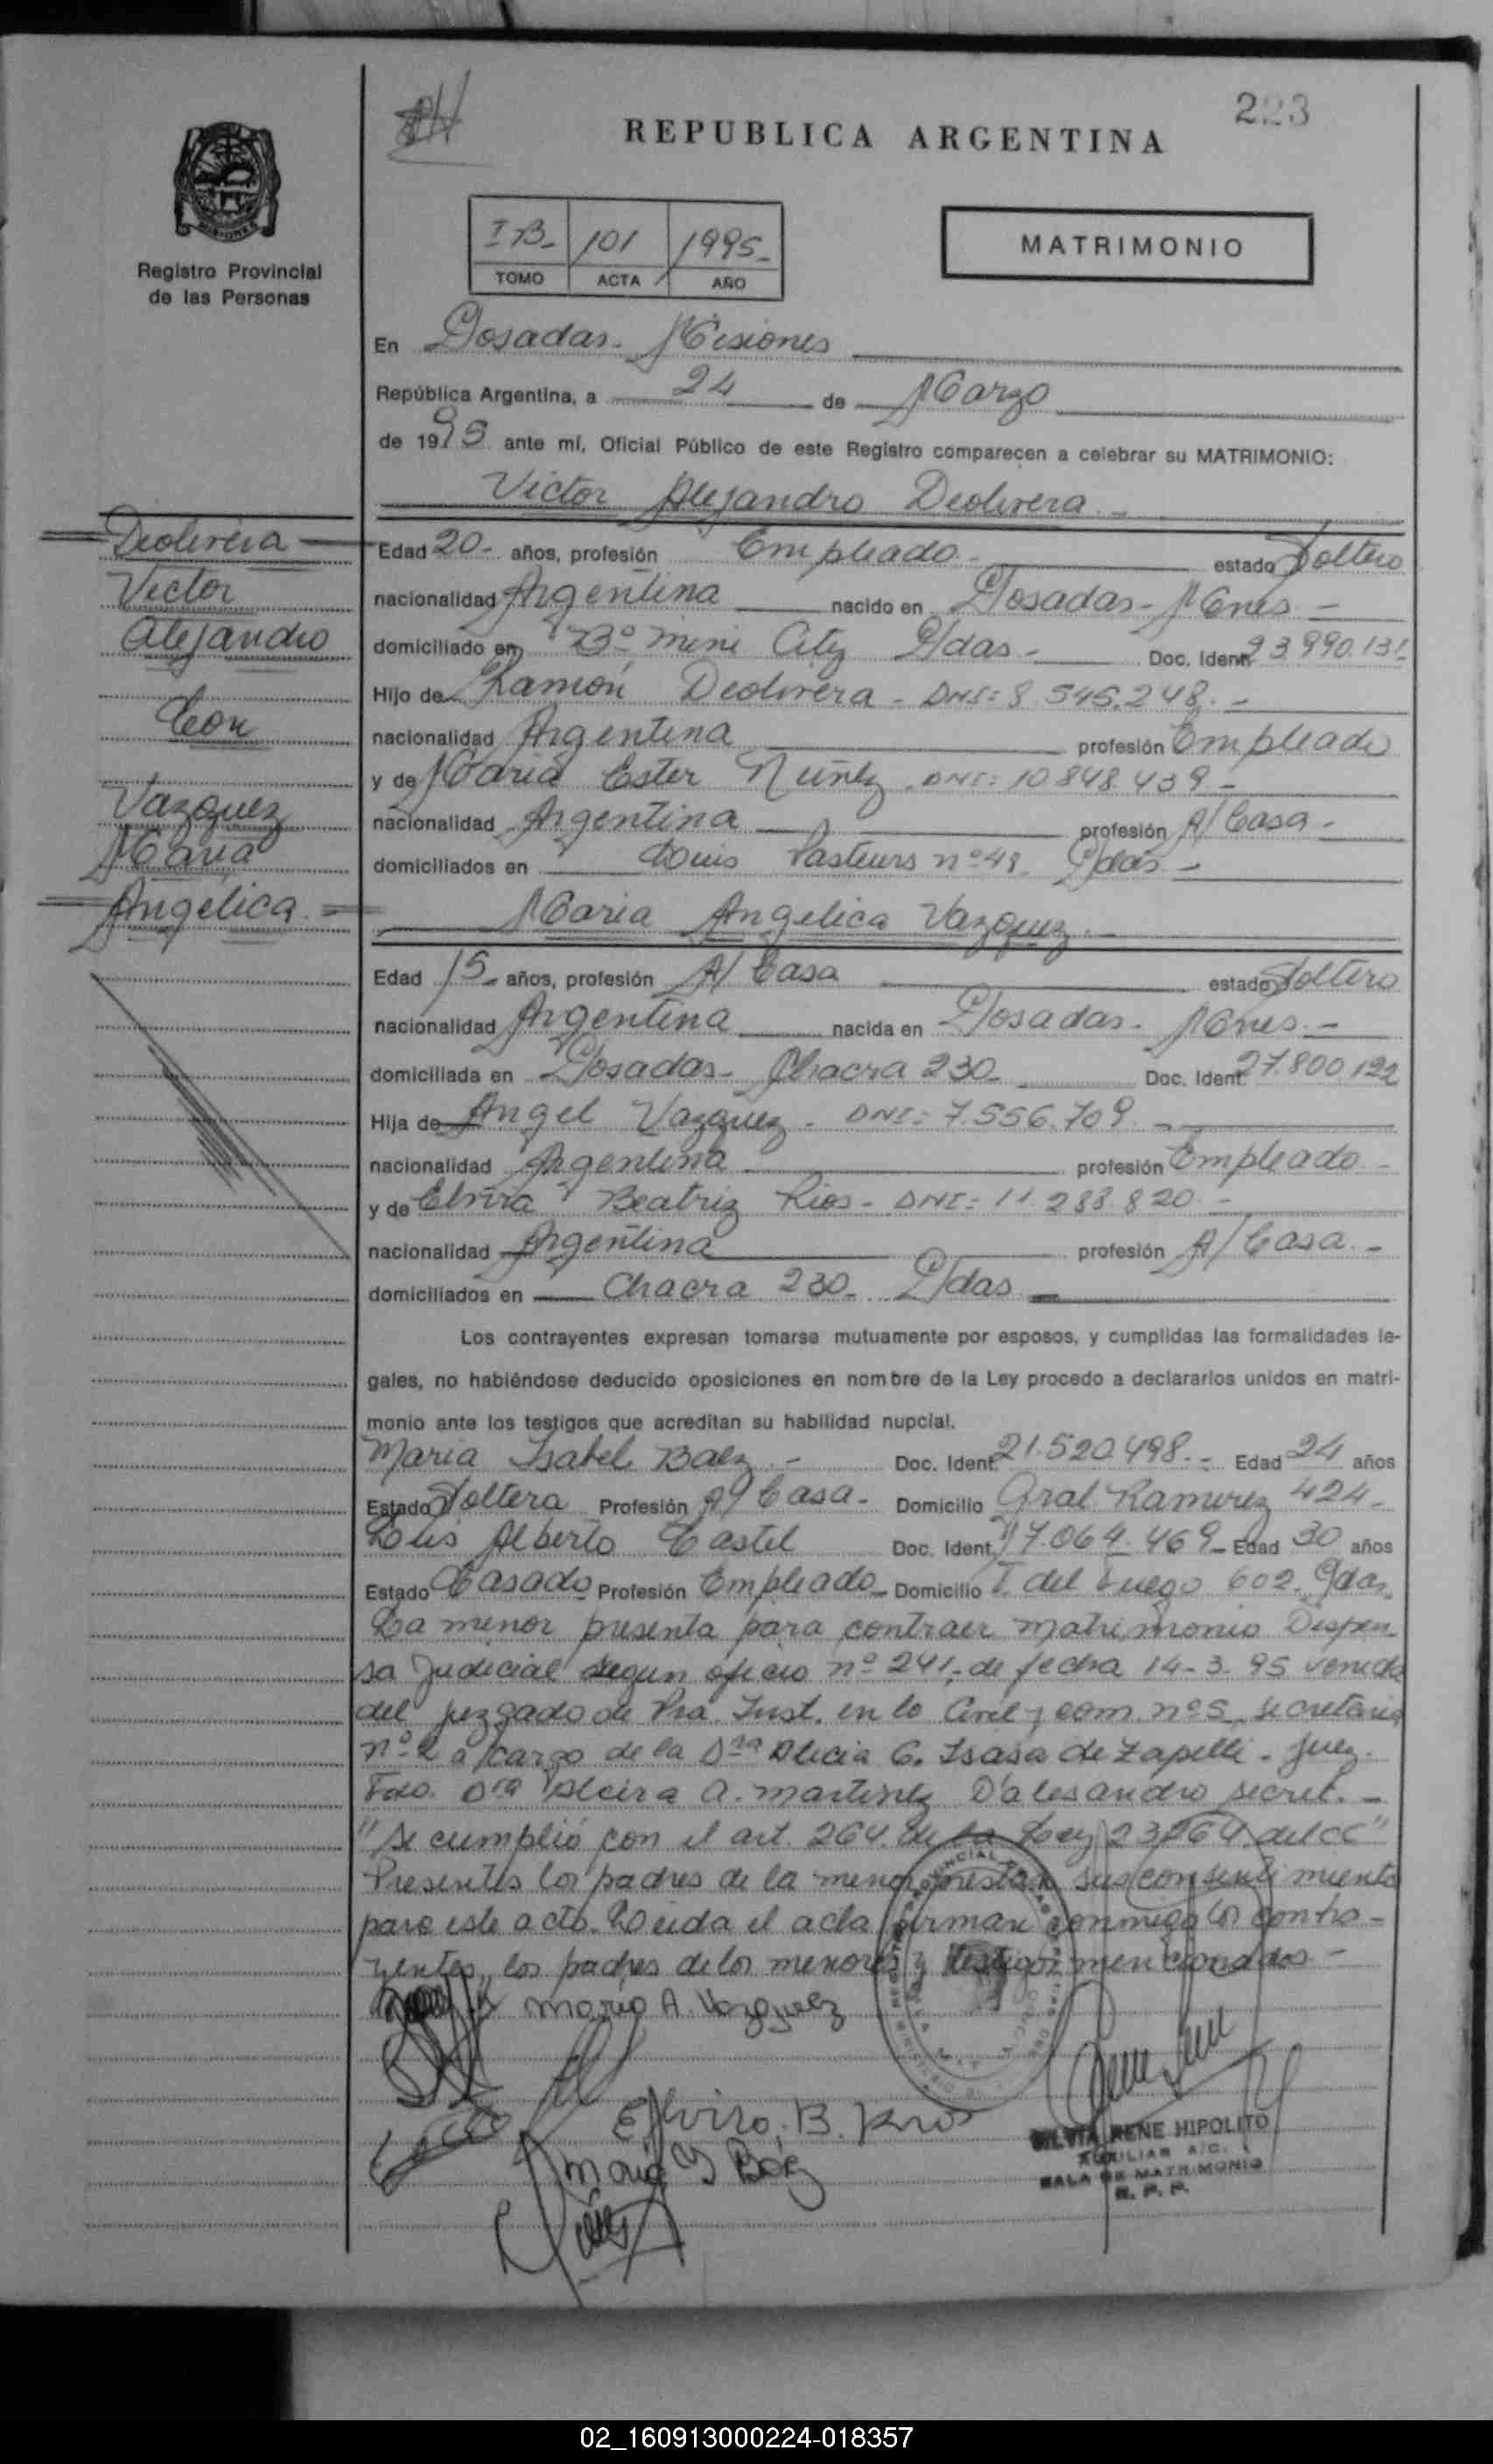 223
REPUBLICA ARGENTINA
MISIONES
Registro Provincial
de las Personas
IB- 101 1995-
TOMO ACTA AÑO
MATRIMONIO
En Posadas - Misiones
República Argentina, a 24 de Marzo
de 1995 ante mí, Oficial Público de este Registro comparecen a celebrar su MATRIMONIO:
Victor Alejandro Deolivera
Deolivera
Victor
Alejandro
Con
Vazquez
Maria
Angelica
Edad 20- años, profesión Empleado - estado Soltero
nacionalidad Argentina nacido en Posadas - Mnes -
domiciliado en Bº Mini City P/das - Doc. Ident. 23.990.131-
Hijo de Ramón Deolivera - DNI: 8.545.248. -
nacionalidad Argentina profesión Empleado
y de Maria Ester Nuñez. DNI: 10.848.439 -
nacionalidad Argentina profesión A/ Casa -
domiciliados en Louis Pasteurs nº 48 P/das -
Maria Angelica Vazquez -
Edad 15- años, profesión A/ Casa estado Soltera
nacionalidad Argentina nacida en Posadas - Mnes. -
domiciliada en Posadas - Chacra 230- Doc. Ident. 27.800.122
Hija de Angel Vazquez - DNI: 7.556.709. -
nacionalidad Argentina profesión Empleado -
y de Elvira Beatriz Rios - DNI: 11.288.820 -
nacionalidad Argentina profesión A/ Casa -
domiciliados en Chacra 230- P/das
Los contrayentes expresan tomarse mutuamente por esposos, y cumplidas las formalidades le-
gales, no habiéndose deducido oposiciones en nombre de la Ley procedo a declararlos unidos en matri-
monio ante los testigos que acreditan su habilidad nupcial.
Maria Isabel Baez - Doc. Ident. 21.520.498.- Edad 24 años
Estado Soltera Profesión A/ Casa - Domicilio Gral. Ramirez 424-
Luis Alberto Castel Doc. Ident. 17.064.469- Edad 30 años
Estado Casado Profesión Empleado- Domicilio T. del Fuego 602. Pdas.
La menor presenta para contraer matrimonio Dispen
sa Judicial segun oficio nº 241,- de fecha 14-3-95 venida
del juzgado de Pra. Inst. en lo Civil y com. nº 5, secretaria
nº 2 a cargo de la Dra Alicia C. Isasa de Zapelli - Juez.
Fdo. Dra Alcira A. Martinez D'alesandro secret. -
"Se cumplió con el art. 264. de la Ley 23264 del CC"
Presentes los padres de la menor prestan sus consentimiento
para este acto. Leida el acta firman conmigo los contra-
yentes, los padres de los menores y testigos mencionados -
Maria A. Vazquez
Elvira B. Rios
Maria I Baez
SILVIA RENE HIPOLITO
AUXILIAR A/C.
SALA DE MATRIMONIO
R. P. P.
02_160913000224-018357